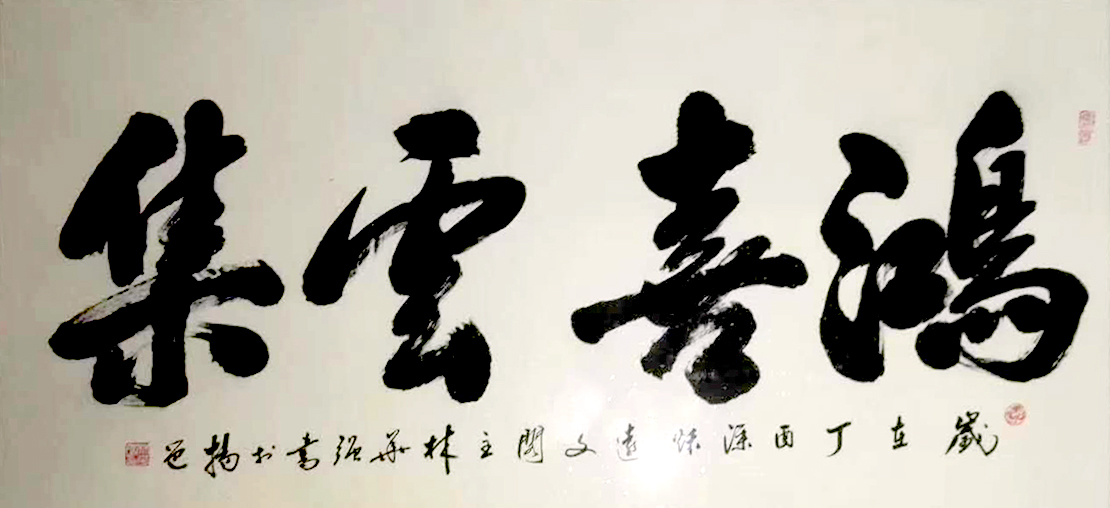 鴻喜雲集
歲在丁酉深秋遠文閣主林華强書於揭邑